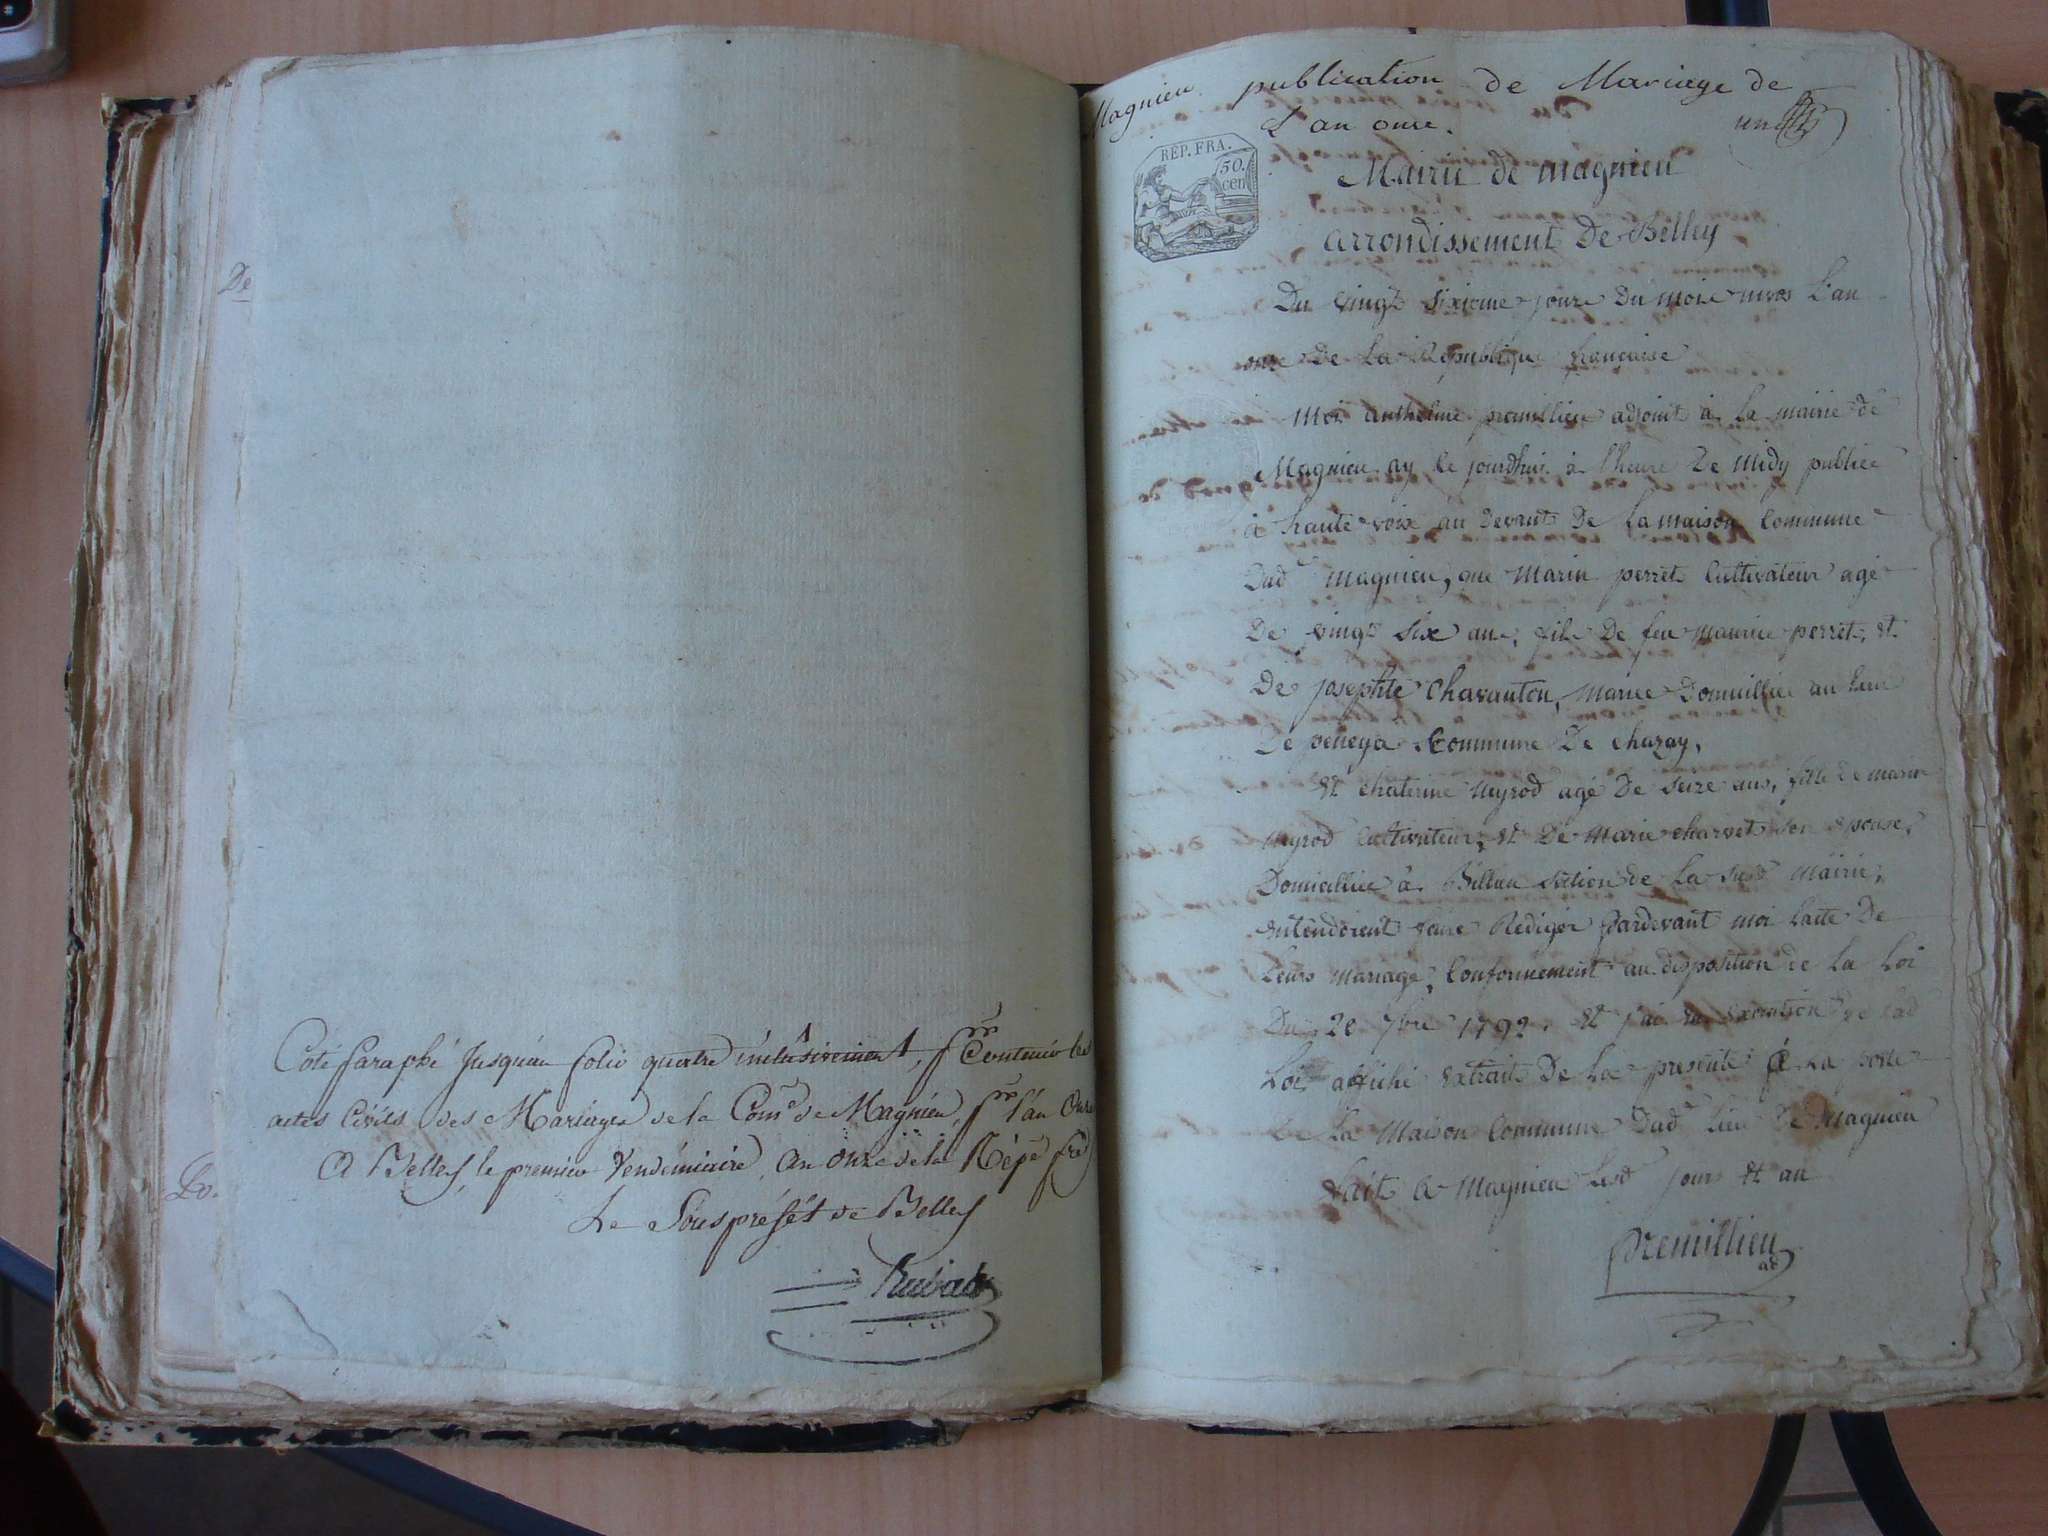 De
Do.
Coté paraphé jusqu'au folio quatre inclusivement, pr Contenir les
actes Civils des Mariages de la Come de Magnieu, pr l'an Onze
A Belley, le premier Vendémiaire, an onze de la Répe fse
Le Sous préfet de Belley
Magnieu publication de Mariage de
L'an onze.
un
RÉP. FRA.
50.
cen
Mairie de magnieu
arrondissement De Belley
Du vingt sixieme jour Du mois nivos L'an
onze De La Republique francaise
Moi anthelme premillieu adjoint à La mairie de
Magnieu ay ce jourdhui à l'heure De midy publiée
à haute voix au devant De La maison Commune
Dud magnieu, que Marin perret Cultivateur agé
De vingt Six ans, fils De feu maurice perret, et
De josephte Chavanton, mariee Domicilliée au Lieu
De peneya Commune De charay,
et chaterine meyrod agé De seize ans, fille de marin
meyrod Cultivateur, et De Marie charvet son epouse,
Domicilliée à Billieu section de La susd mairie,
entendoient faire Rediger pardevant moi lacte De
Leurs mariage, Conformement au disposition de La Loi
Du 20 7bre 1792. et j'ai en execution de Lad
Loi, affiché extrait De La presente à La porte
De La Maison Commune Dud Lieu De Magnieu
Fait à Magnieu Lesd jour et an
premillieu
ad